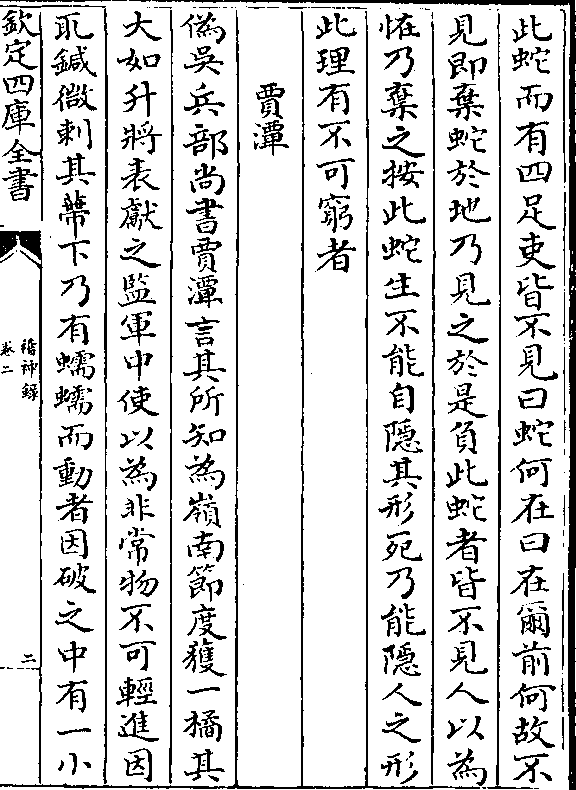 此蛇而有四足吏皆不見曰蛇何在曰在爾前何故不
見即棄蛇於地乃見之於是負此蛇者皆不見人以為
恠乃棄之按此蛇生不能自隱其形死乃能隱人之形
此理有不可窮者
賈潭
偽吳兵部尚書賈潭言其所知為嶺南節度獲一橘其
大如升將表獻之監軍中使以為非常物不可輕進因
取鍼微刺其蔕下乃有蠕蠕而動者因破之中有一小
欽定四庫全書
稽神錄
卷二
二